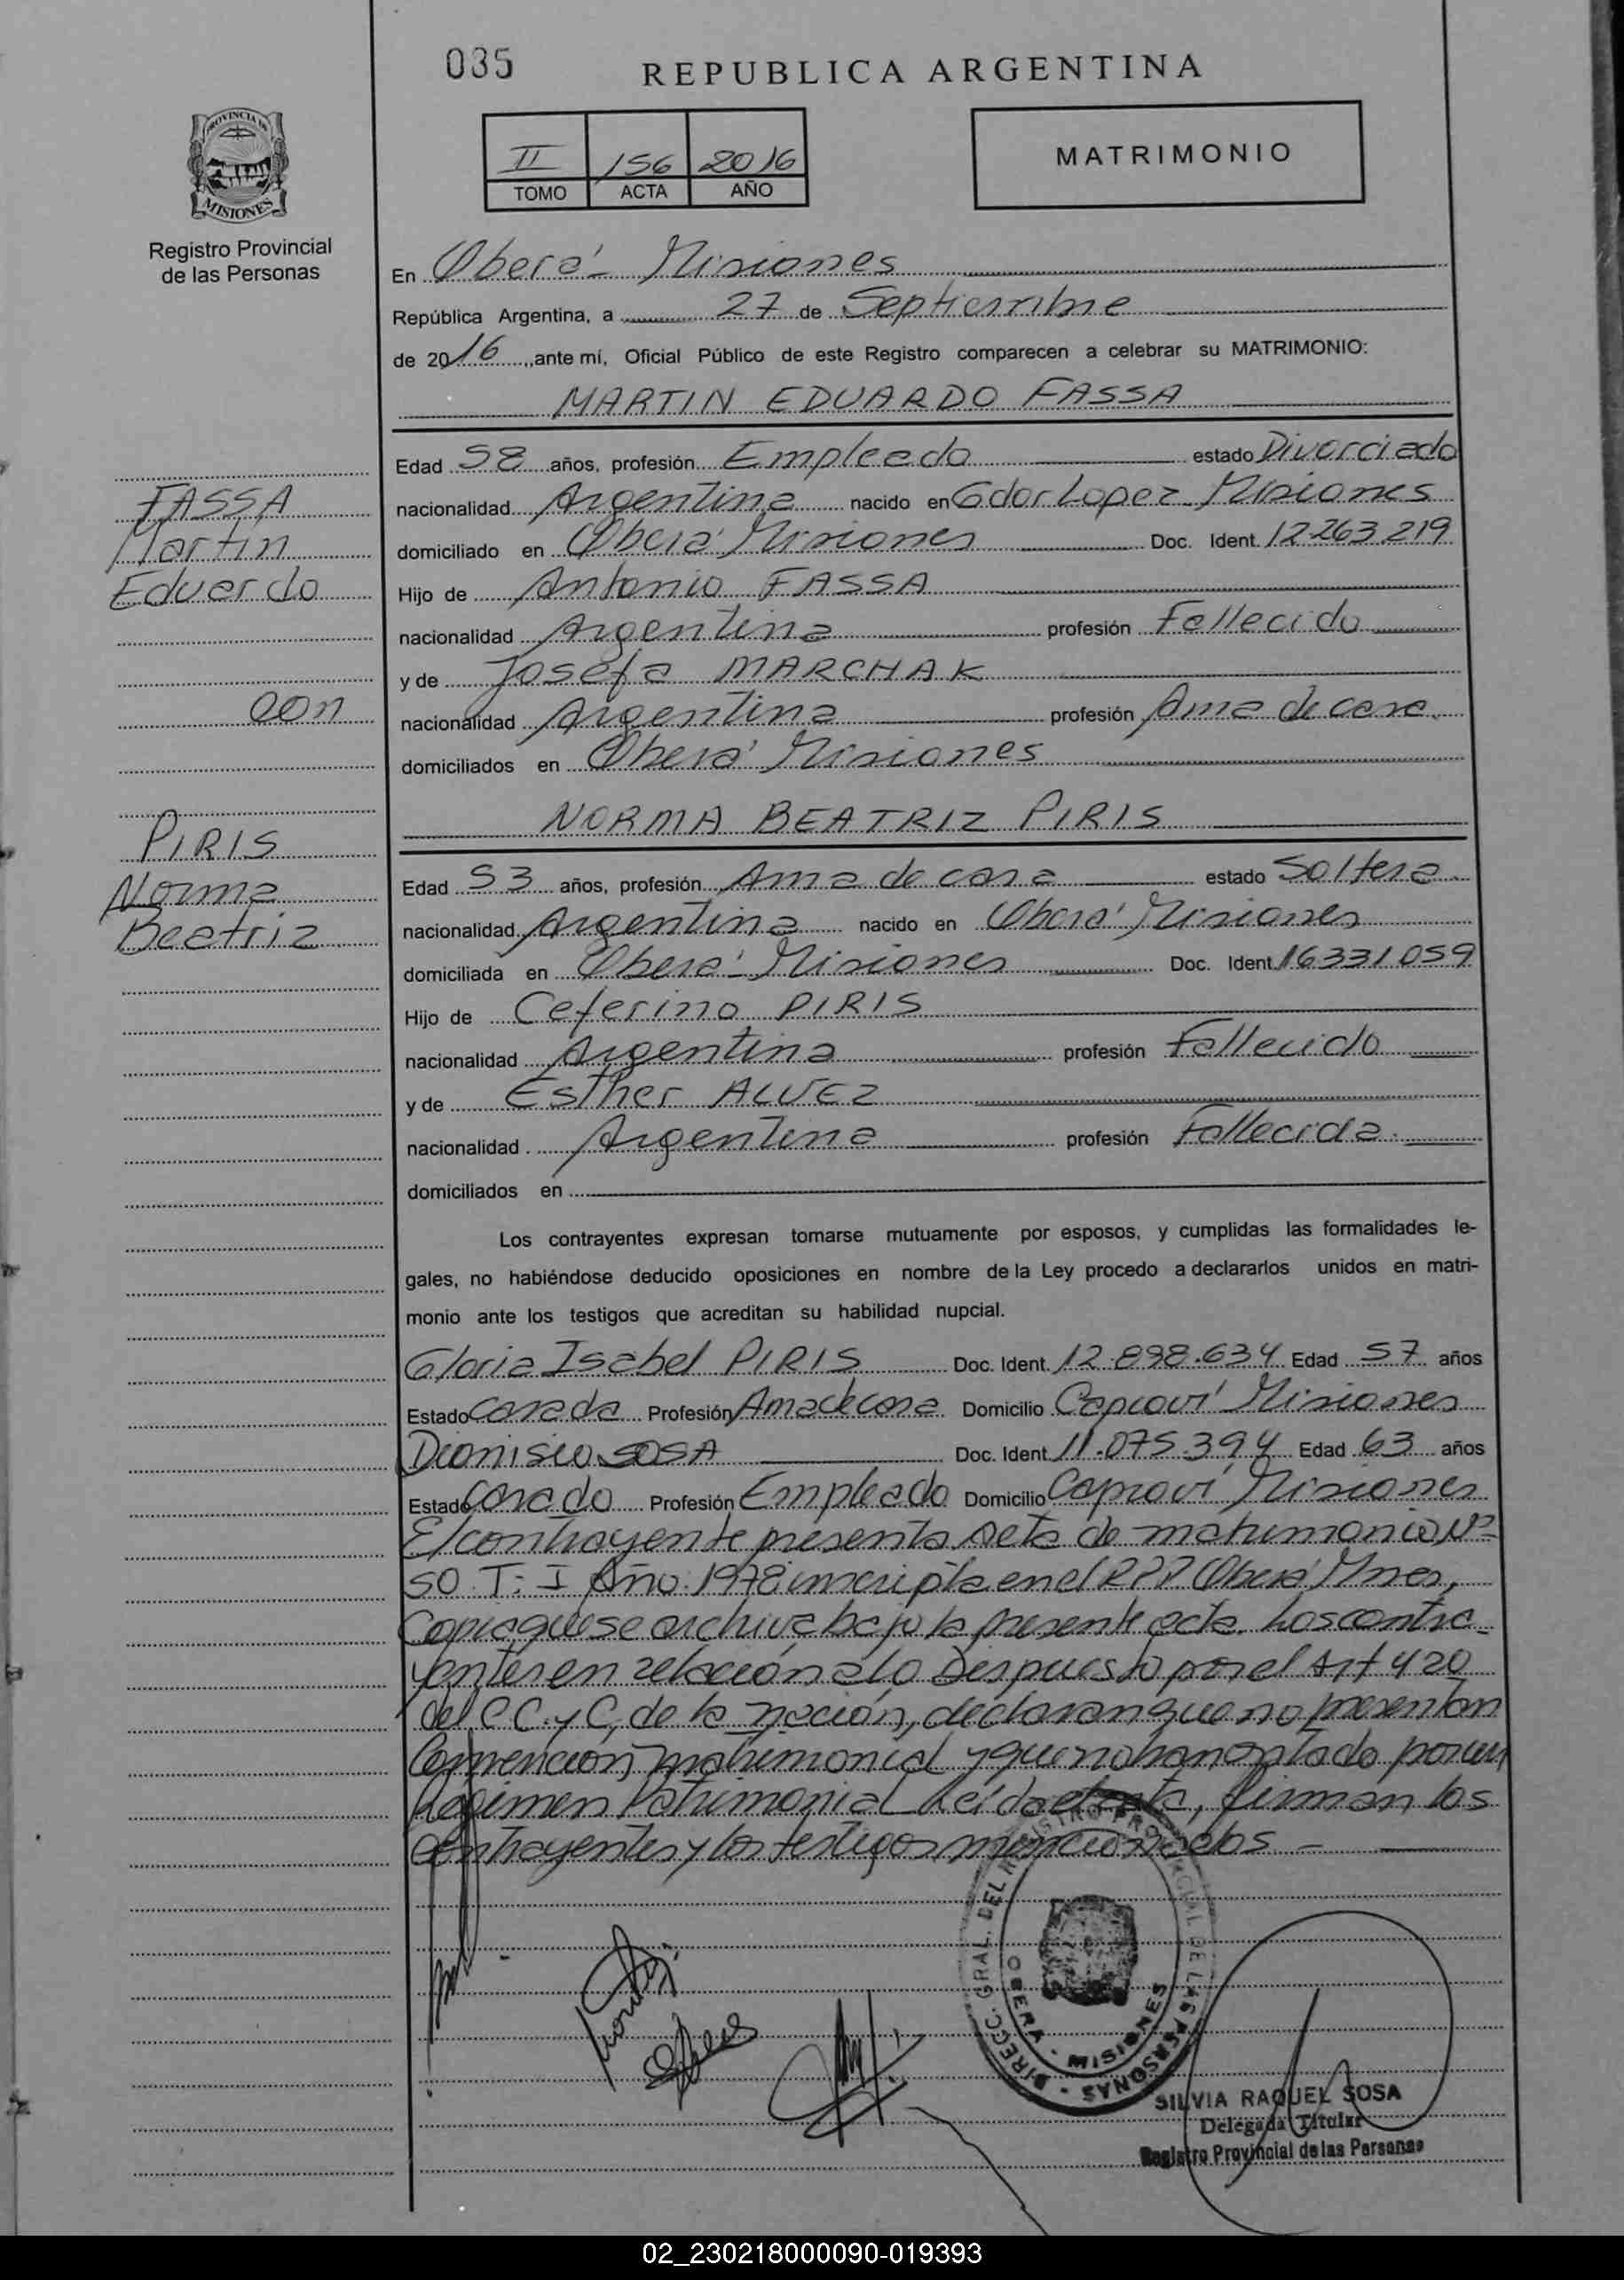 035
REPUBLICA ARGENTINA
PROVINCIA DE
MISIONES
Registro Provincial
de las Personas
II 156 2016
TOMO ACTA AÑO
MATRIMONIO
En Oberá - Misiones
República Argentina, a 27 de Septiembre
de 2016, ante mí, Oficial Público de este Registro comparecen a celebrar su MATRIMONIO:
MARTIN EDUARDO FASSA
Edad 58 años, profesión Empleado estado Divorciado
nacionalidad Argentina nacido en Gdor Lopez Misiones
domiciliado en Oberá Misiones Doc. Ident. 12.263.219
Hijo de Antonio FASSA
nacionalidad Argentina profesión Fallecido
y de Josefa MARCHAK
nacionalidad Argentina profesión Ama de casa.
domiciliados en Oberá Misiones
FASSA
Martin
Eduardo
con
PIRIS
Norma
Beatriz
NORMA BEATRIZ PIRIS
Edad 53 años, profesión Ama de casa estado Soltera.
nacionalidad Argentina nacido en Oberá Misiones
domiciliada en Oberá - Misiones Doc. Ident. 16331.059
Hijo de Ceferino PIRIS
nacionalidad Argentina profesión Fallecido
y de Esther ALVEZ
nacionalidad Argentina profesión Fallecida.
domiciliados en
Los contrayentes expresan tomarse mutuamente por esposos, y cumplidas las formalidades le-
gales, no habiéndose deducido oposiciones en nombre de la Ley procedo a declararlos unidos en matri-
monio ante los testigos que acreditan su habilidad nupcial.
Gloria Isabel PIRIS Doc. Ident. 12.898.634 Edad 57 años
Estado Casada Profesión Ama de casa Domicilio Capioví Misiones
Dionisio SOSA Doc. Ident. 11.075.394 Edad 63 años
Estado Casado Profesión Empleado Domicilio Capioví Misiones
El contrayente presenta acta de matrimonio Nº
50 T: I Año 1978 inscripta en el RPP Oberá Mnes,
Copia que se archiva bajo la presente acta. Los contra-
yentes en relación a lo Despuesto por el Art 420
del C.C. y C, de la nación, declaran que no presentan
Convención matrimonial y que no han optado por un
Regimen Patrimonial Leída el acta, firman los
contrayentes y los testigos mencionados -
DIRECC. GRAL. DEL REGISTRO PROVINCIAL DE LAS PERSONAS
OBERA - MISIONES
SILVIA RAQUEL SOSA
Delegada Titular
Registro Provincial de las Personas
02_230218000090-019393